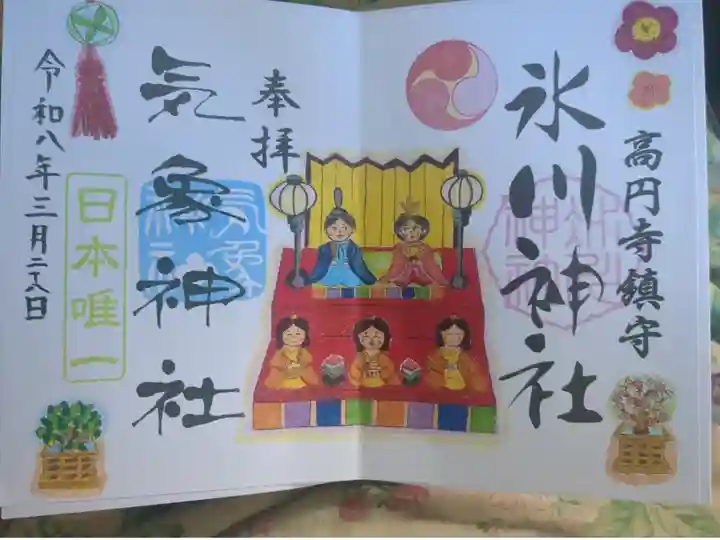 高円寺鎮守
氷川神社
奉拝
気象神社
気象
神社
日本唯一
令和八年三月二八日